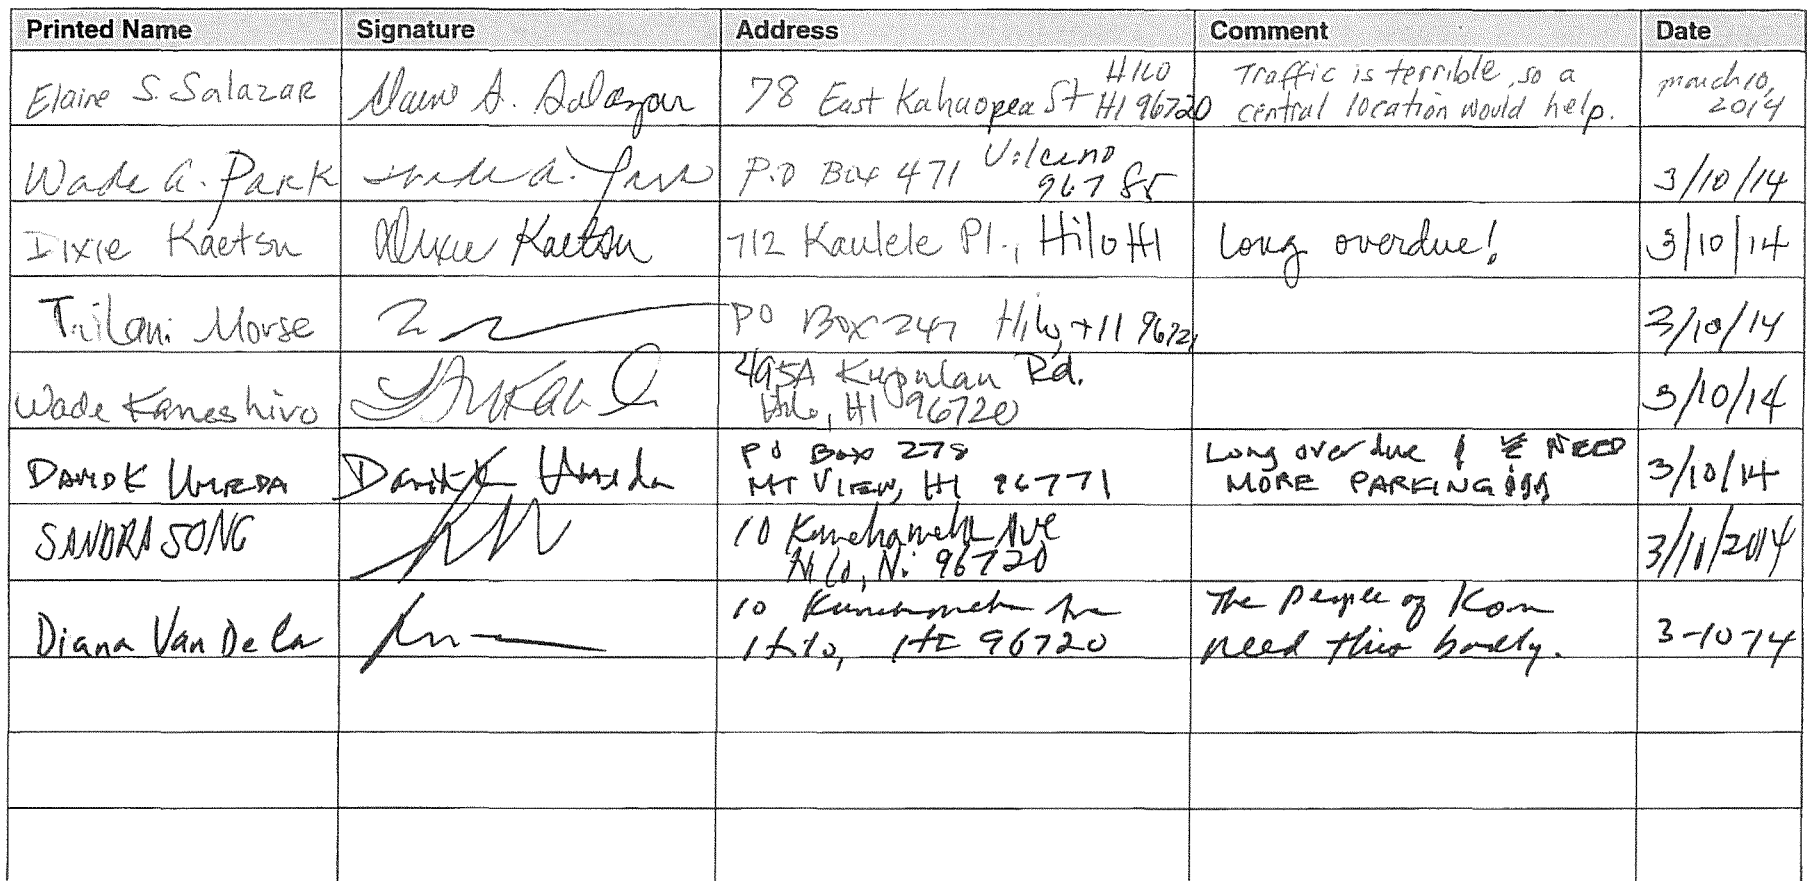 Printed Name Signature Address Comment Date
Elaine S. Salazar Elaine S. Salazar 78 East Kahaopea St HILO HI 96720 Traffic is terrible, so a central location would help. March 10, 2014
Wade A. Park Wade A. Park P.O Box 471 Volcano 96785 3/10/14
Dixie Kaetsu Dixie Kaetsu 712 Kaulele Pl., Hilo HI Long overdue! 3/10/14
Morse PO Box 247 Hilo, HI 96721 3/10/14
Wade Kaneshiro 495A Kupulau Rd. Hilo, HI 96720 3/10/14
DAVID K UMEDA David K Umeda PO Box 278 MT VIEW, HI 96771 Long overdue & WE NEED MORE PARKING!!! 3/10/14
SANDRA SONG 10 Kamehameha Ave Hilo, Hi 96720 3/10/2014
Diana Van De La 10 Kamehameha Ave Hilo, HI 96720 The People of Kona need this badly. 3-10-14